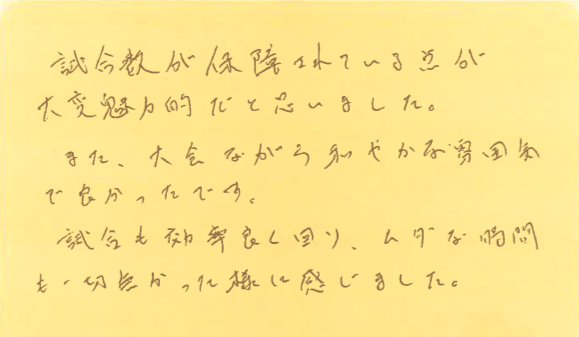 試合数が保障されている点が
大変魅力的だと思いました。
また、大会ながら和やかな雰囲気
で良かったです。
試合も効率良く回り、ムダな時間
も一切無かった様に感じました。